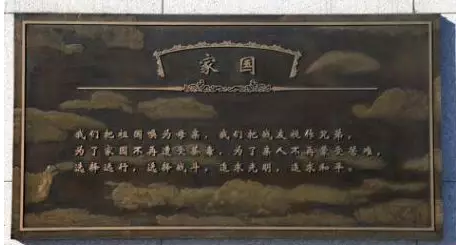 家国
我们把祖国唤为母亲，我们把战友视作兄弟。
为了家园不再遭受荼毒，为了亲人不再蒙受苦难，
选择远行，选择战斗，追求光明，追求和平。